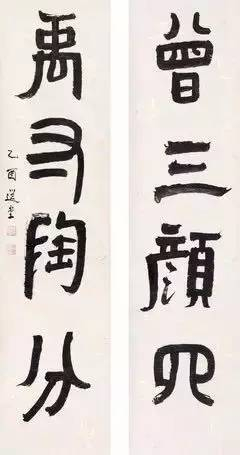 曾三顏四
禹寸陶分
乙酉 選堂